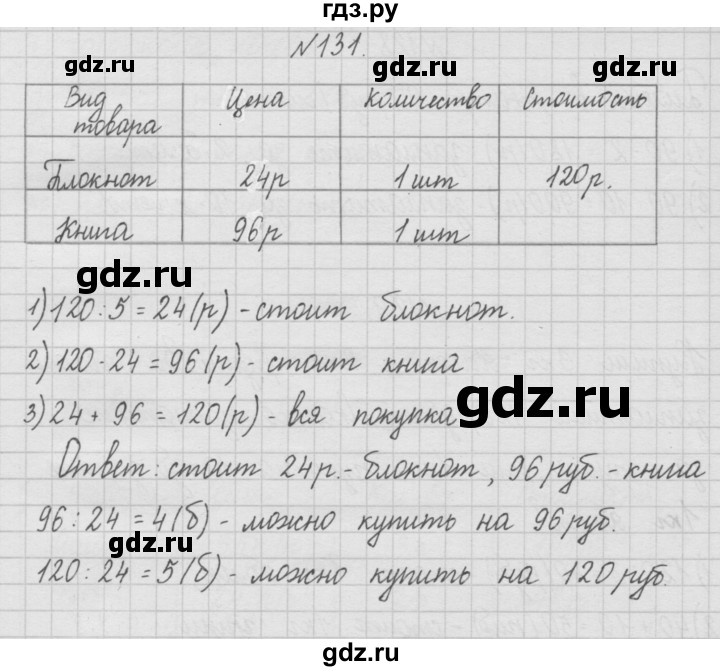 гдз.ру
№131.
gdz.ru gdz.ru
Вид товара Цена Количество Стоимость
Блокнот 24р 1 шт 120р.
Книга 96р 1 шт
gdz.ru
1) 120 : 5 = 24 (р) - стоит блокнот.
2) 120 - 24 = 96 (р) - стоит книга
3) 24 + 96 = 120 (р) - вся покупка
gdz.ru
Ответ: стоит 24 р. - блокнот, 96 руб. - книга
96 : 24 = 4 (б) - можно купить на 96 руб.
gdz.ru
120 : 24 = 5 (б) - можно купить на 120 руб.